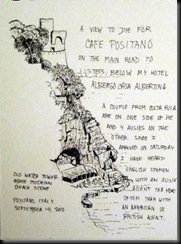 A VIEW TO DIE FOR
CAFE POSITANO
ON THE MAIN ROAD TO
STEPS; BELOW MY HOTEL
ALBERGO CASA ALBERTINA
A COUPLE FROM COSTA RICA
ARE ON ONE SIDE OF ME
AND 4 AUSSIES ON THE
OTHER SINCE I
ARRIVED ON SATURDAY.
I HAVE HEARD
ENGLISH SPOKEN
WITH AN AUSSIE
ACCENT FAR MORE
OFTEN THAN WITH
AN AMERICAN OR
BRITISH ACCENT.
OLD WATCH TOWER
ABOVE POSITANO
BEACH SCENE
POSITANO, ITALY
SEPTEMBER 14, 2010